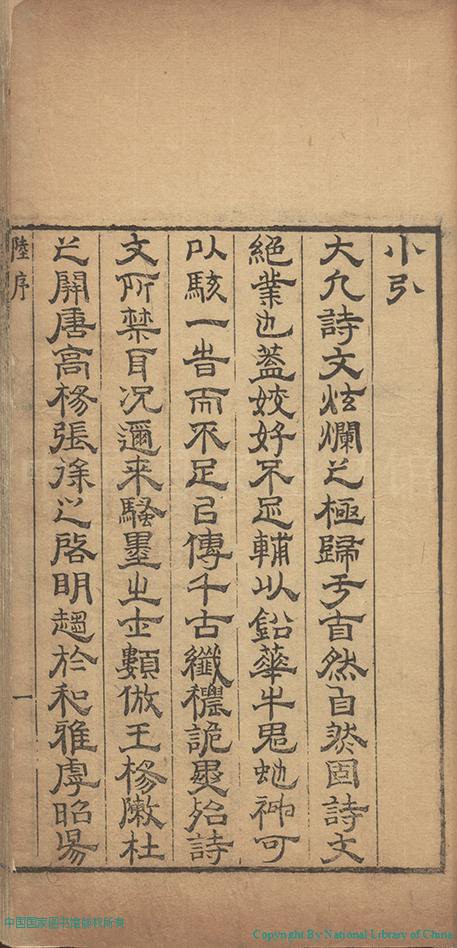 小引
大凡詩文炫爛之極歸于自然自然固詩文
絕業也蓋姣好不足輔以鉛華牛鬼蛇神可
以駭一旹而不足㠯傳千古纖穠詭異殆詩
文所禁耳况邇来騷墨之士類倣王楊杜
之開唐高楊張徐之啓明趨於和雅虖昭昜
陸序
一
中国国家图书馆版权所有
Copyright By National Library of China